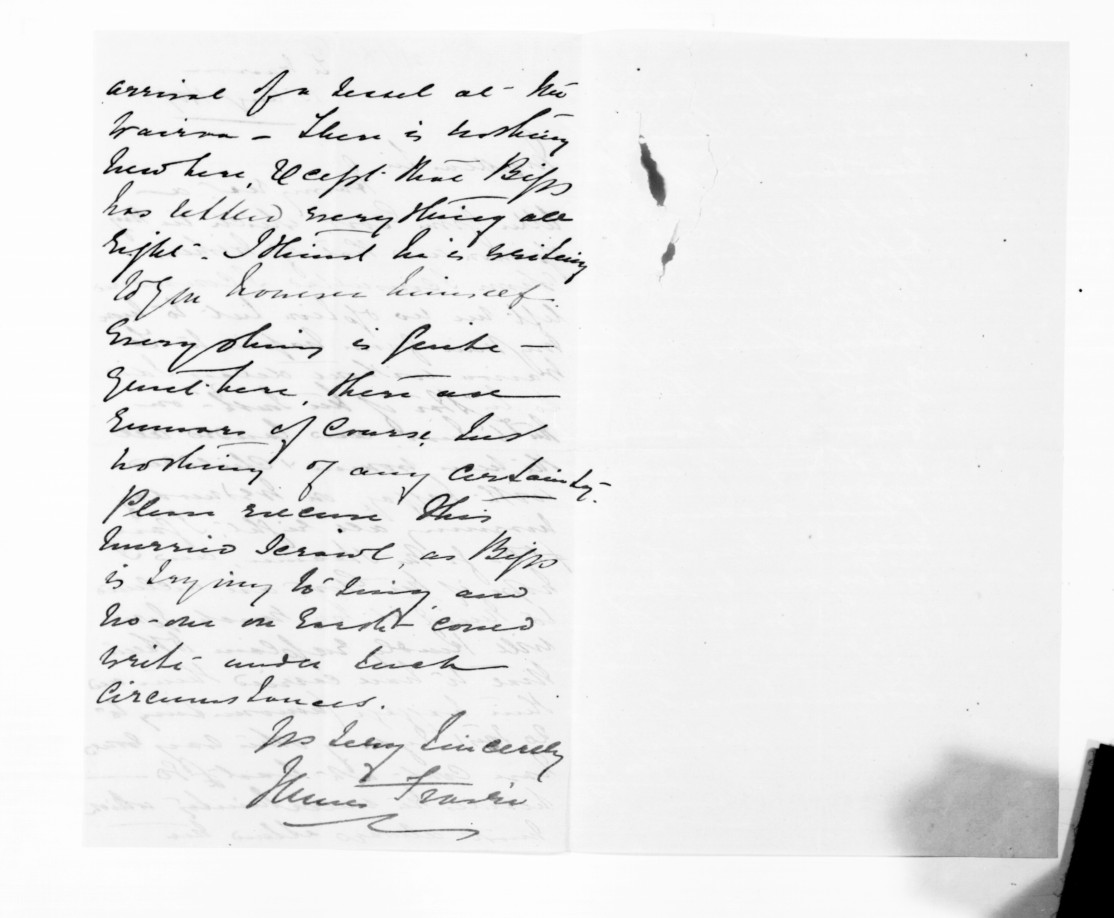 arrival of a vessel at the
Wairoa - There is nothing
new here, except that Biggs
has settled everything all
right - I think he is writing
to you however himself.
Everything is quite -
quiet here, there are
rumours of course but
nothing of any certainty.
Please excuse this
hurried scrawl, as Biggs
is trying to sing and
no-one on Earth could
write under such
circumstances.
Yrs very sincerely
James Fraser